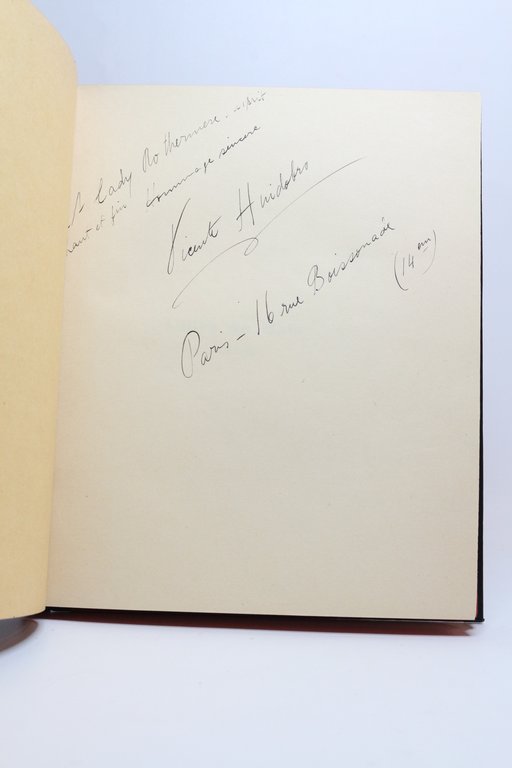 A Lady Rothermere. esprit
haut et fin l'hommage sincère
Vicente Huidobro
Paris - 16 rue Boissonáde
(14 em)